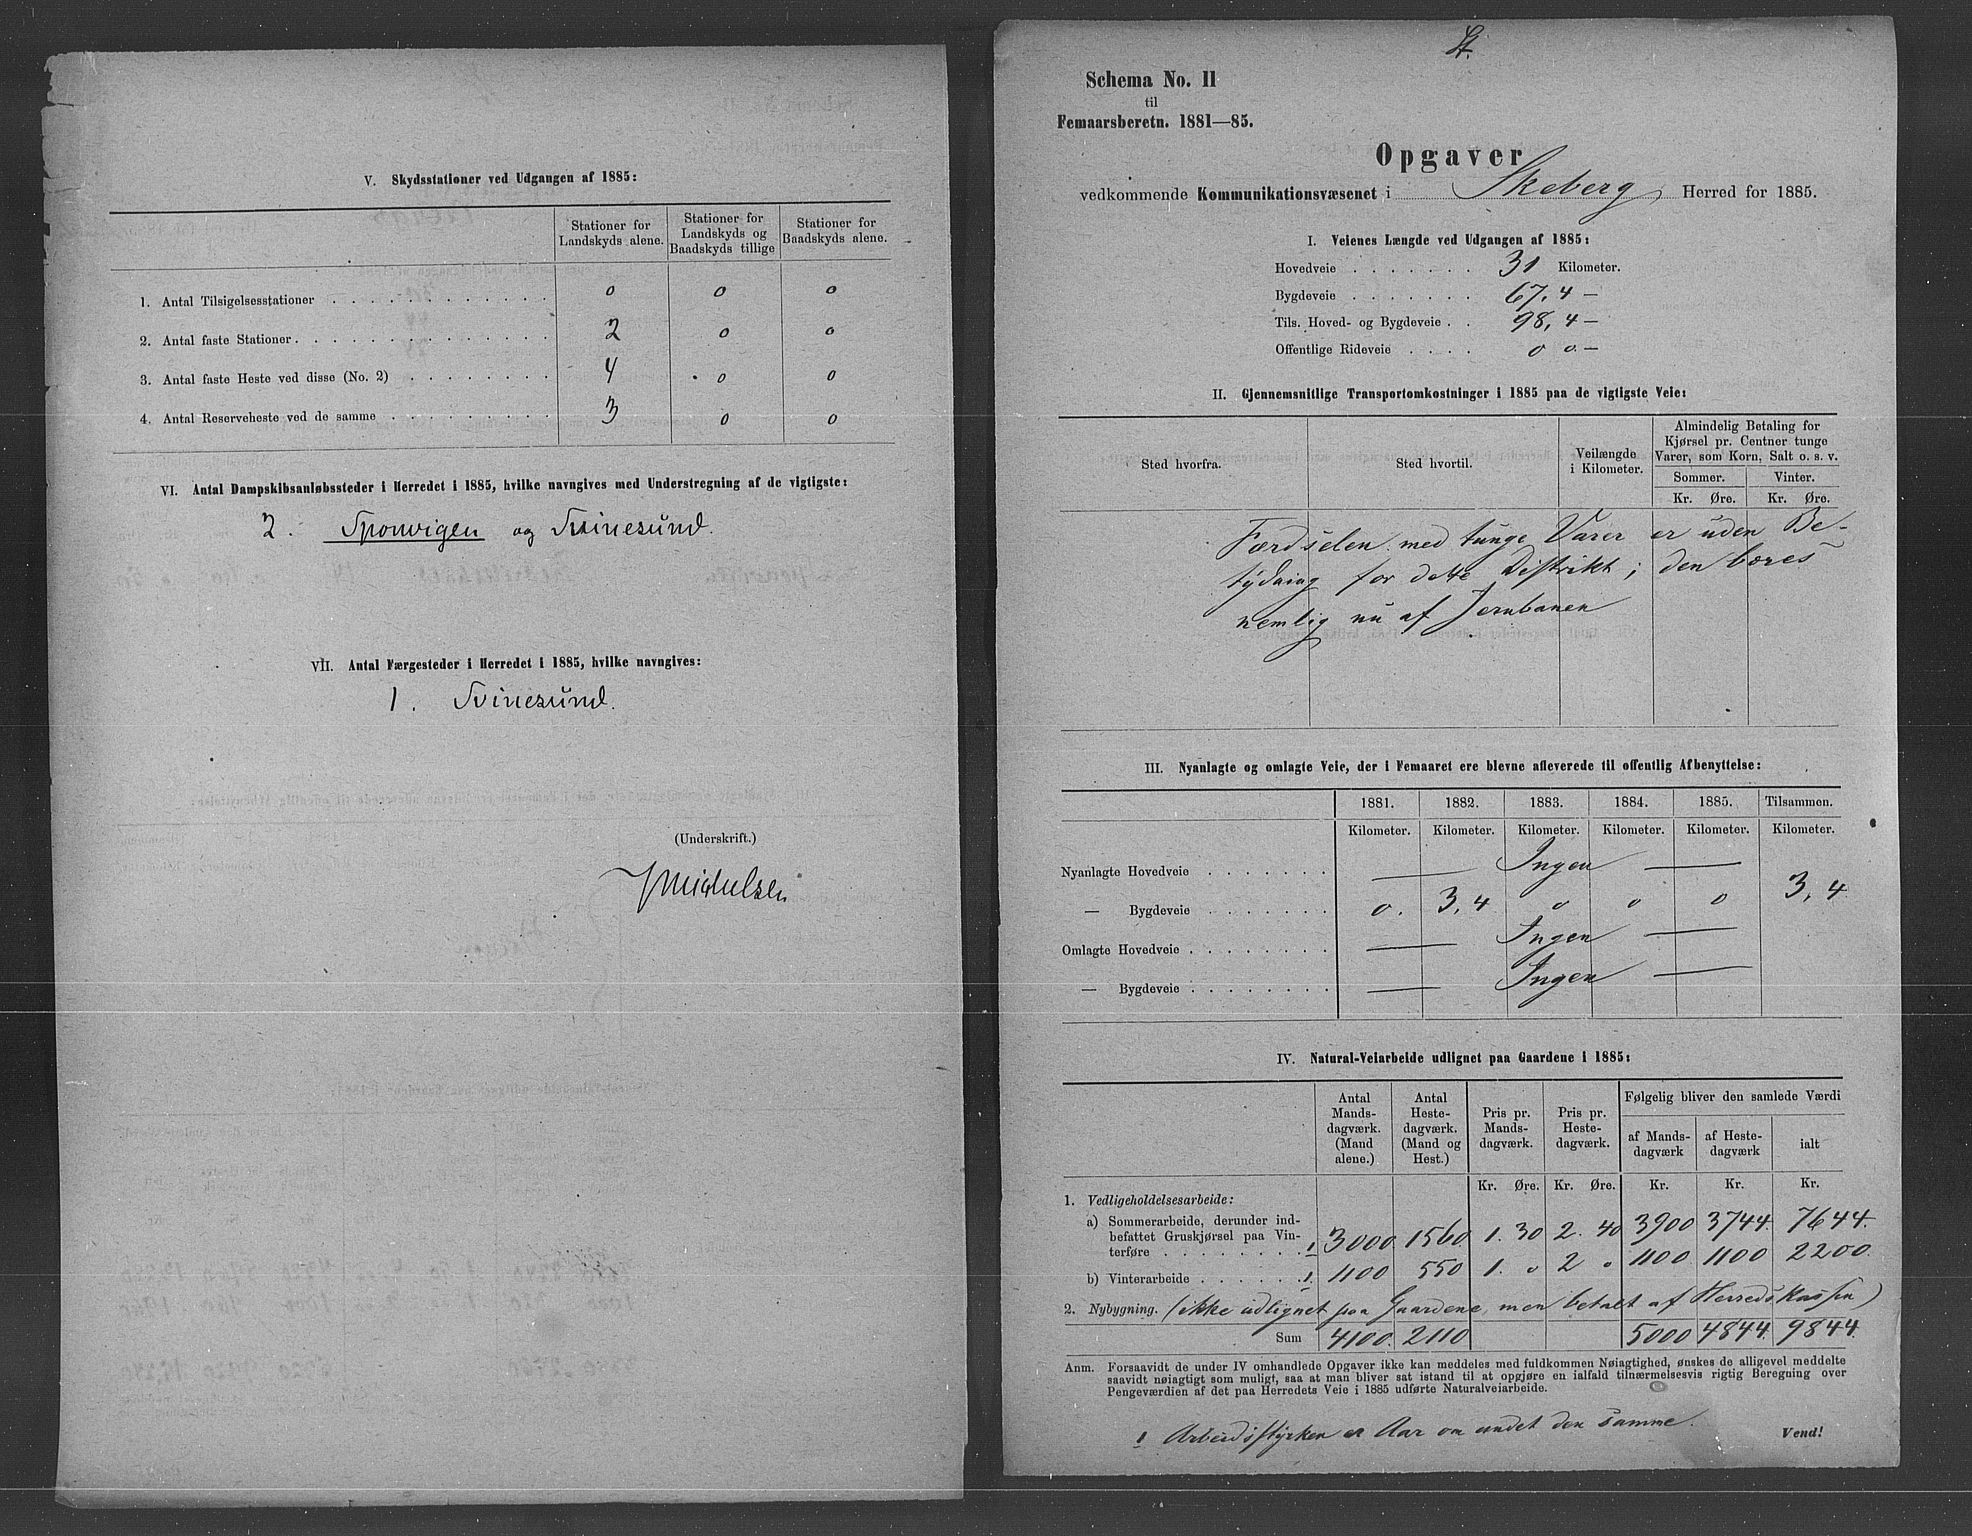 V. Skydsstationer ved Udgangen af 1885:
Stationer for Landskyds alene. Stationer for Landskyds og Baadskyds tillige Stationer for Baadskyds alene.
1. Antal Tilsigelsesstationer 0 0 0
2. Antal faste Stationer 2 0 0
3. Antal faste Heste ved disse (No. 2) 4 0 0
4. Antal Reserveheste ved de samme 3 0 0
VI. Antal Dampskibsanløbssteder i Herredet i 1885, hvilke navngives med Understregning af de vigtigste:
2. Sponvigen og Svinesund.
VII. Antal Færgesteder i Herredet i 1885, hvilke navngives:
1. Svinesund.
(Underskrift.)
Schema No. II
til
Femaarsberetn. 1881—85.
Opgaver
vedkommende Kommunikationsvæsenet i Skeberg Herred for 1885.
I. Veienes Længde ved Udgangen af 1885:
Hovedveie 31 Kilometer.
Bygdeveie 67,4 —
Tils. Hoved- og Bygdeveie 98,4 —
Offentlige Rideveie 0 0 —
II. Gjennemsnitlige Transportomkostninger i 1885 paa de vigtigste Veie:
Sted hvorfra. Sted hvortil. Veilængde i Kilometer. Almindelig Betaling for Kjørsel pr. Centner tunge Varer, som Korn, Salt o. s. v.
Sommer. Vinter.
Kr. Øre. Kr. Øre.
Færdselen med tunge Varer er uden Be-
tydning for dette Distrikt; den bæres
nemlig nu af Jernbanen
III. Nyanlagte og omlagte Veie, der i Femaaret ere blevne afleverede til offentlig Afbenyttelse:
1881. 1882. 1883. 1884. 1885. Tilsammen.
Kilometer. Kilometer. Kilometer. Kilometer. Kilometer. Kilometer.
Nyanlagte Hovedveie — Ingen —
— Bygdeveie 0. 3,4 0 0 0 3,4
Omlagte Hovedveie — Ingen —
— Bygdeveie — Ingen —
IV. Natural-Veiarbeide udlignet paa Gaardene i 1885:
Antal Mandsdagværk. (Mand alene.) Antal Hestedagværk. (Mand og Hest.) Pris pr. Mandsdagværk. Pris pr. Hestedagværk. Følgelig bliver den samlede Værdi
af Mandsdagværk af Hestedagværk ialt
Kr. Øre. Kr. Øre. Kr. Kr. Kr.
1. Vedligeholdelsesarbeide:
a) Sommerarbeide, derunder ind-
befattet Gruskjørsel paa Vin-
terføre 1 3000 1560 1. 30 2. 40 3900 3744. 7644.
b) Vinterarbeide 1. 1100 550 1. 0 2 0 1100 1100 2200
2. Nybygning. (ikke udlignet paa Gaardene, men betalt af Herredskassen)
Sum 4100. 2110 5000 4844. 9844.
Anm. Forsaavidt de under IV omhandlede Opgaver ikke kan meddeles med fuldkommen Nøiagtighed, ønskes de alligevel meddelte
saavidt nøiagtigt som muligt, saa at man bliver sat istand til at opgjøre en ialfald tilnærmelsesvis rigtig Beregning over
Pengeværdien af det paa Herredets Veie i 1885 udførte Naturalveiarbeide.
1 Arbeidsstyrken er Aar om andet den samme.
Vend!